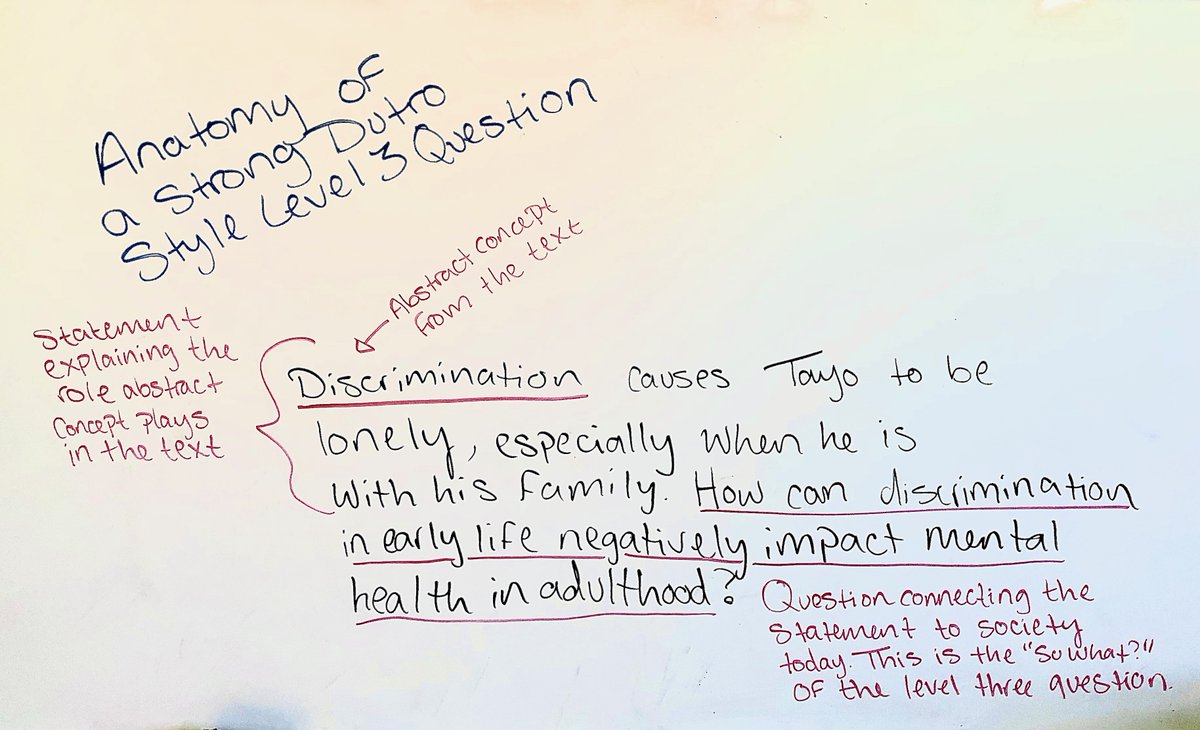 Anatomy of
a strong Dutro
Style Level 3 Question
Abstract concept
from the text
Statement
explaining the
role abstract
concept plays
in the text
Discrimination causes Tayo to be
lonely, especially when he is
with his family. How can discrimination
in early life negatively impact mental
health in adulthood?
Question connecting the
statement to society
today. This is the "So what?"
of the level three question.